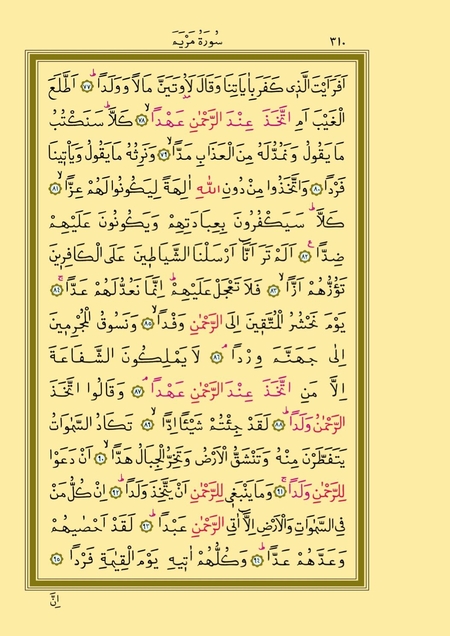 ٣١٠ سُورَةُ مَرْيَمَ
اَفَرَاَيْتَ الَّذ۪ي كَفَرَ بِاٰيَاتِنَا وَقَالَ لَاُو۫تَيَنَّ مَالًا وَوَلَدًاۜ ﴿٧٧﴾ اَطَّلَعَ
الْغَيْبَ اَمِ اتَّخَذَ عِنْدَ الرَّحْمٰنِ عَهْدًاۙ ﴿٧٨﴾ كَلَّاۜ سَنَكْتُبُ
مَا يَقُولُ وَنَمُدُّ لَهُ مِنَ الْعَذَابِ مَدًّاۙ ﴿٧٩﴾ وَنَرِثُهُ مَا يَقُولُ وَيَأْت۪ينَا
فَرْدًا ﴿٨٠﴾ وَاتَّخَذُوا مِنْ دُونِ اللّٰهِ اٰلِهَةً لِيَكُونُوا لَهُمْ عِزًّاۙ ﴿٨١﴾
كَلَّاۜ سَيَكْفُرُونَ بِعِبَادَتِهِمْ وَيَكُونُونَ عَلَيْهِمْ
ضِدًّا۟ ﴿٨٢﴾ اَلَمْ تَرَ اَنَّٓا اَرْسَلْنَا الشَّيَاط۪ينَ عَلَى الْكَافِر۪ينَ
تَؤُزُّهُمْ اَزًّاۙ ﴿٨٣﴾ فَلَا تَعْجَلْ عَلَيْهِمْۜ اِنَّمَا نَعُدُّ لَهُمْ عَدًّاۚ ﴿٨٤﴾
يَوْمَ نَحْشُرُ الْمُتَّق۪ينَ اِلَى الرَّحْمٰنِ وَفْدًاۙ ﴿٨٥﴾ وَنَسُوقُ الْمُجْرِم۪ينَ
اِلٰى جَهَنَّمَ وِرْدًاۢ ﴿٨٦﴾ لَا يَمْلِكُونَ الشَّفَاعَةَ
اِلَّا مَنِ اتَّخَذَ عِنْدَ الرَّحْمٰنِ عَهْدًاۢ ﴿٨٧﴾ وَقَالُوا اتَّخَذَ
الرَّحْمٰنُ وَلَدًاۜ ﴿٨٨﴾ لَقَدْ جِئْتُمْ شَيْـًٔا اِدًّاۙ ﴿٨٩﴾ تَكَادُ السَّمٰوَاتُ
يَتَفَطَّرْنَ مِنْهُ وَتَنْشَقُّ الْاَرْضُ وَتَخِرُّ الْجِبَالُ هَدًّاۙ ﴿٩٠﴾ اَنْ دَعَوْا
لِلرَّحْمٰنِ وَلَدًاۚ ﴿٩١﴾ وَمَا يَنْبَغ۪ي لِلرَّحْمٰنِ اَنْ يَتَّخِذَ وَلَدًاۜ ﴿٩٢﴾ اِنْ كُلُّ مَنْ
فِي السَّمٰوَاتِ وَالْاَرْضِ اِلَّٓا اٰتِي الرَّحْمٰنِ عَبْدًاۜ ﴿٩٣﴾ لَقَدْ اَحْصٰيهُمْ
وَعَدَّهُمْ عَدًّاۜ ﴿٩٤﴾ وَكُلُّهُمْ اٰت۪يهِ يَوْمَ الْقِيٰمَةِ فَرْدًا ﴿٩٥﴾
اِنَّ